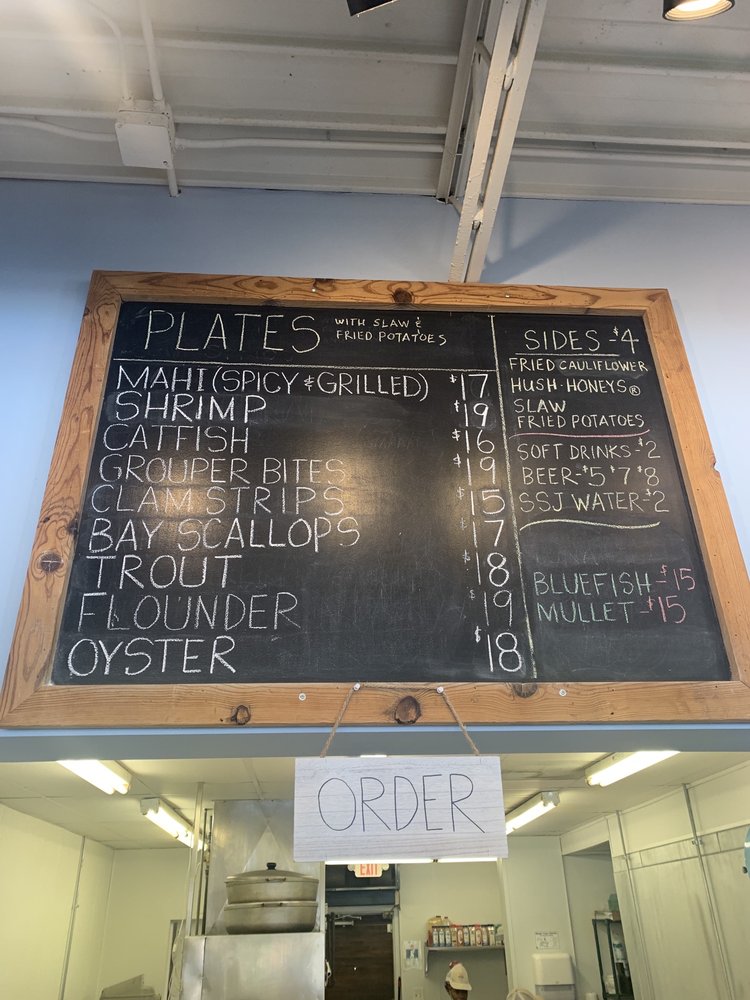 PLATES WITH SLAW &
FRIED POTATOES
MAHI (SPICY & GRILLED) $17
SHRIMP $19
CATFISH $16
GROUPER BITES $19
CLAM STRIPS $15
BAY SCALLOPS $17
TROUT $18
FLOUNDER $19
OYSTER $18
SIDES - $4
FRIED CAULIFLOWER
HUSH-HONEYS®
SLAW
FRIED POTATOES
SOFT DRINKS - $2
BEER - $5 $7 $8
SSJ WATER - $2
BLUEFISH - $15
MULLET - $15
ORDER
EXIT